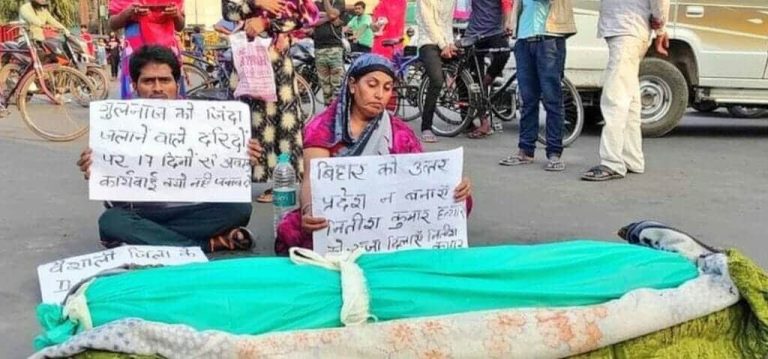 गुलनाज को जिंदा
जलाने वाले दरिंदों
पर 17 दिनों से अबतक
कार्रवाई क्यों नहीं
बिहार को उत्तर
प्रदेश न बनाएँ
नितीश कुमार
को सजा दिलाएँ नितीश
कुमार
वैशाली जिला के